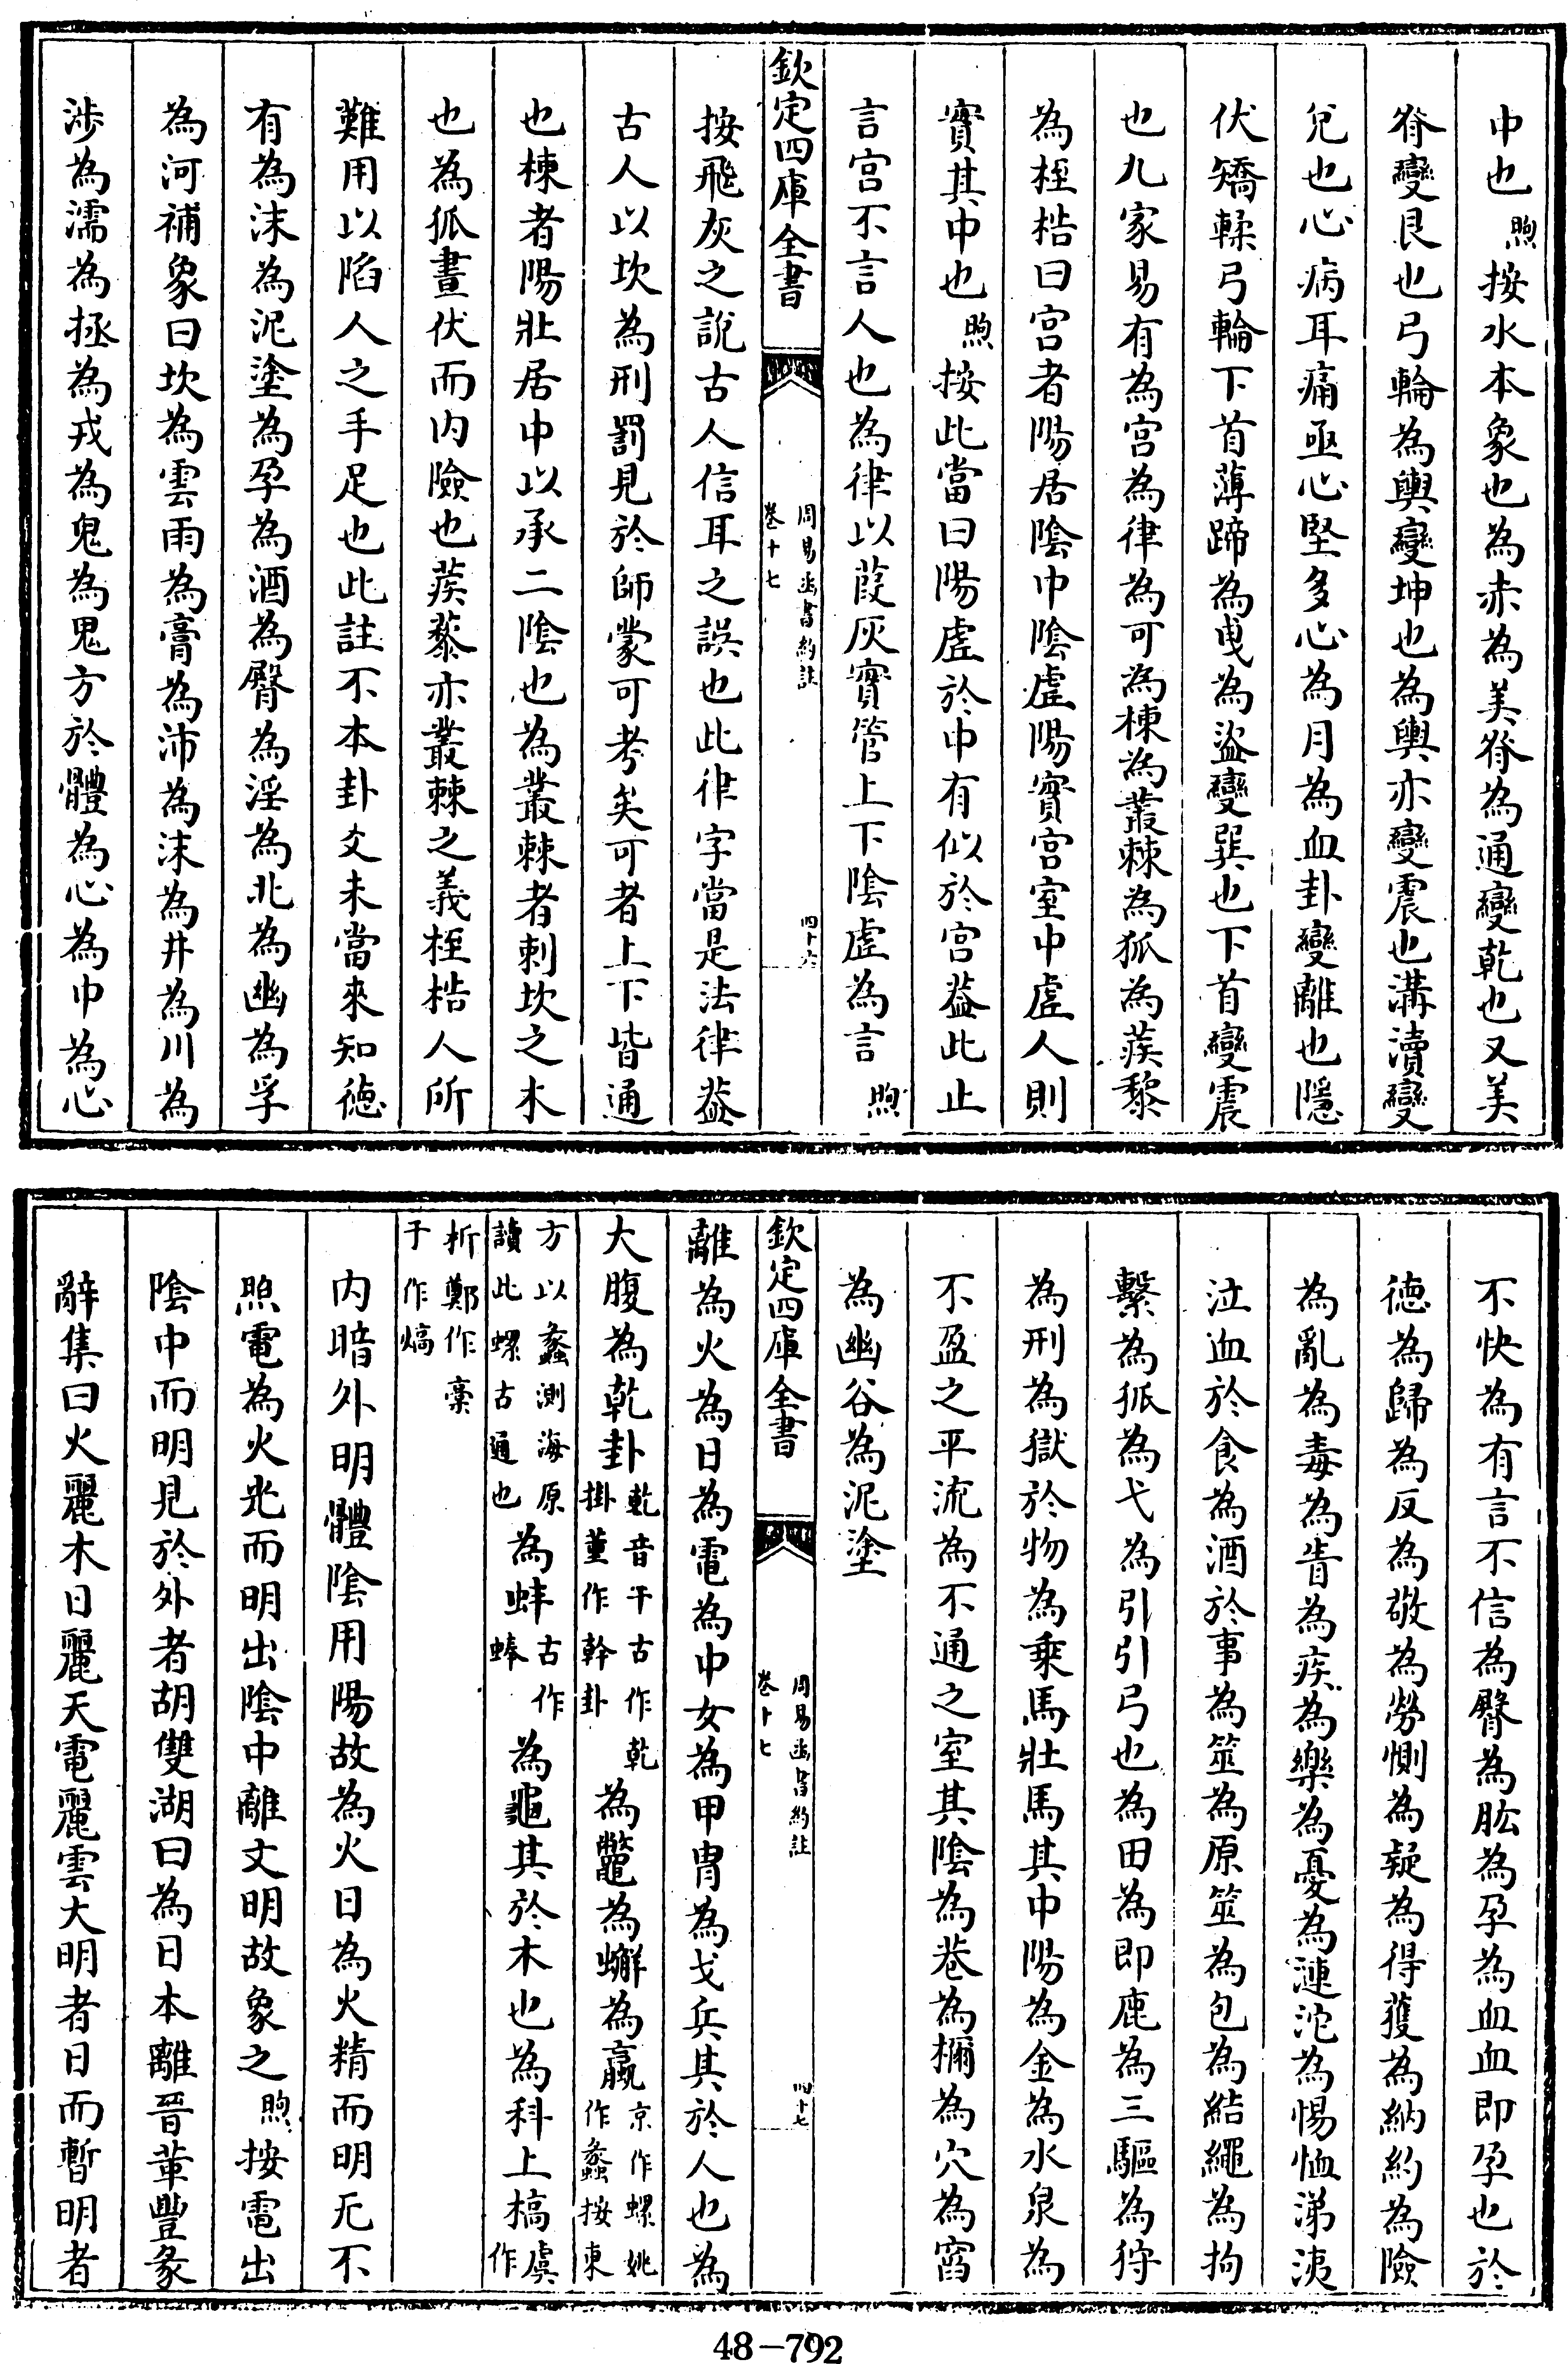 中也煦按水本象也為赤為美脊為通變乾也又美
脊變艮也弓輪為輿變坤也為輿亦變震也溝瀆變
兌也心病耳痛亟心堅多心為月為血卦變離也隱
伏矯輮弓輪下首薄蹄為曳為盜變巽也下首變震
也九家易有為宮為律為可為棟為叢棘為狐為蒺藜
為桎梏曰宮者陽居陰中陰虛陽實宮室中虛人則
實其中也煦按此當曰陽虛於中有似於宮葢此止
言宮不言人也為律以葭灰實管上下陰虛為言煦
欽定四庫全書
周易函書約註
卷十七
四十六
按飛灰之說古人信耳之誤也此律字當是法律葢
古人以坎為刑罰見於師蒙可考矣可者上下皆通
也棟者陽壯居中以承二陰也為叢棘者刺坎之木
也為狐晝伏而內險也蒺藜亦叢棘之義桎梏人所
難用以陷人之手足也此註不本卦爻未當來知德
有為沫為泥塗為孕為酒為臀為淫為北為幽為孚
為河補象曰坎為雲雨為膏為沛為沫為井為川為
涉為濡為拯為戎為鬼為鬼方於體為心為中為心
不快為有言不信為臀為肱為孕為血血即孕也於
德為歸為反為敬為勞惻為疑為得獲為納約為險
為亂為毒為眚為疾為樂為憂為漣沱為惕恤涕洟
泣血於食為酒於事為筮為原筮為包為結繩為拘
繫為狐為弋為引引弓也為田為即鹿為三驅為狩
為刑為獄於物為乘馬壯馬其中陽為金為水泉為
不盈之平流為不通之室其陰為巷為檷為穴為窞
為幽谷為泥塗
欽定四庫全書
周易函書約註
卷十七
四十七
離為火為日為電為中女為甲冑為戈兵其於人也為
大腹為乾卦乾音干古作乾掛董作幹卦為鼈為蠏為蠃京作螺姚作蠡按東
方以蠡測海原讀此螺古通也為蚌古作蜯為龜其於木也為科上槁虞作
折鄭作稾于作熇
內暗外明體陰用陽故為火日為火精而明无不
照電為火光而明出陰中離文明故象之煦按電出
陰中而明見於外者胡雙湖曰為日本離晉革豐彖
辭集曰火麗木日麗天電麗雲大明者日而暫明者
48-792